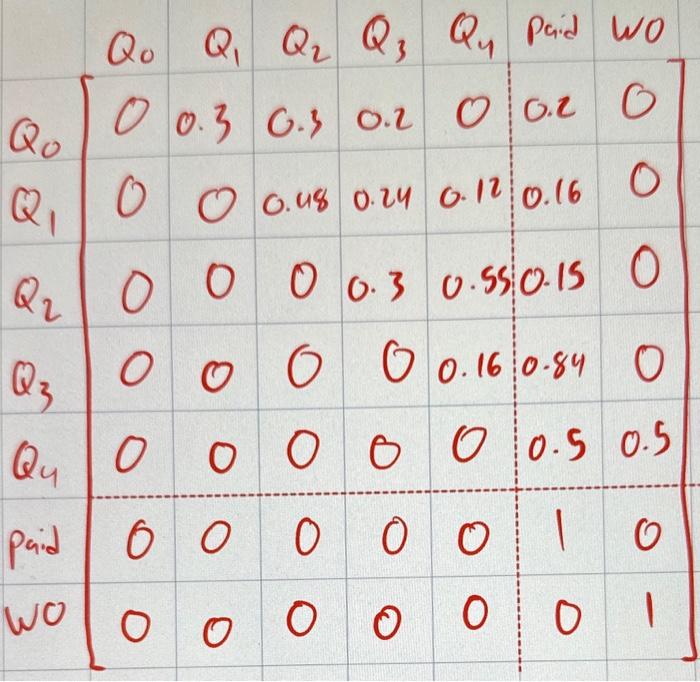 Q0 Q1 Q2 Q3 Q4 Paid WO
Q0 0 0.3 0.3 0.2 0 0.2 0
Q1 0 0 0.48 0.24 0.12 0.16 0
Q2 0 0 0 0.3 0.55 0.15 0
Q3 0 0 0 0 0.16 0.84 0
Q4 0 0 0 0 0 0.5 0.5
Paid 0 0 0 0 0 1 0
WO 0 0 0 0 0 0 1